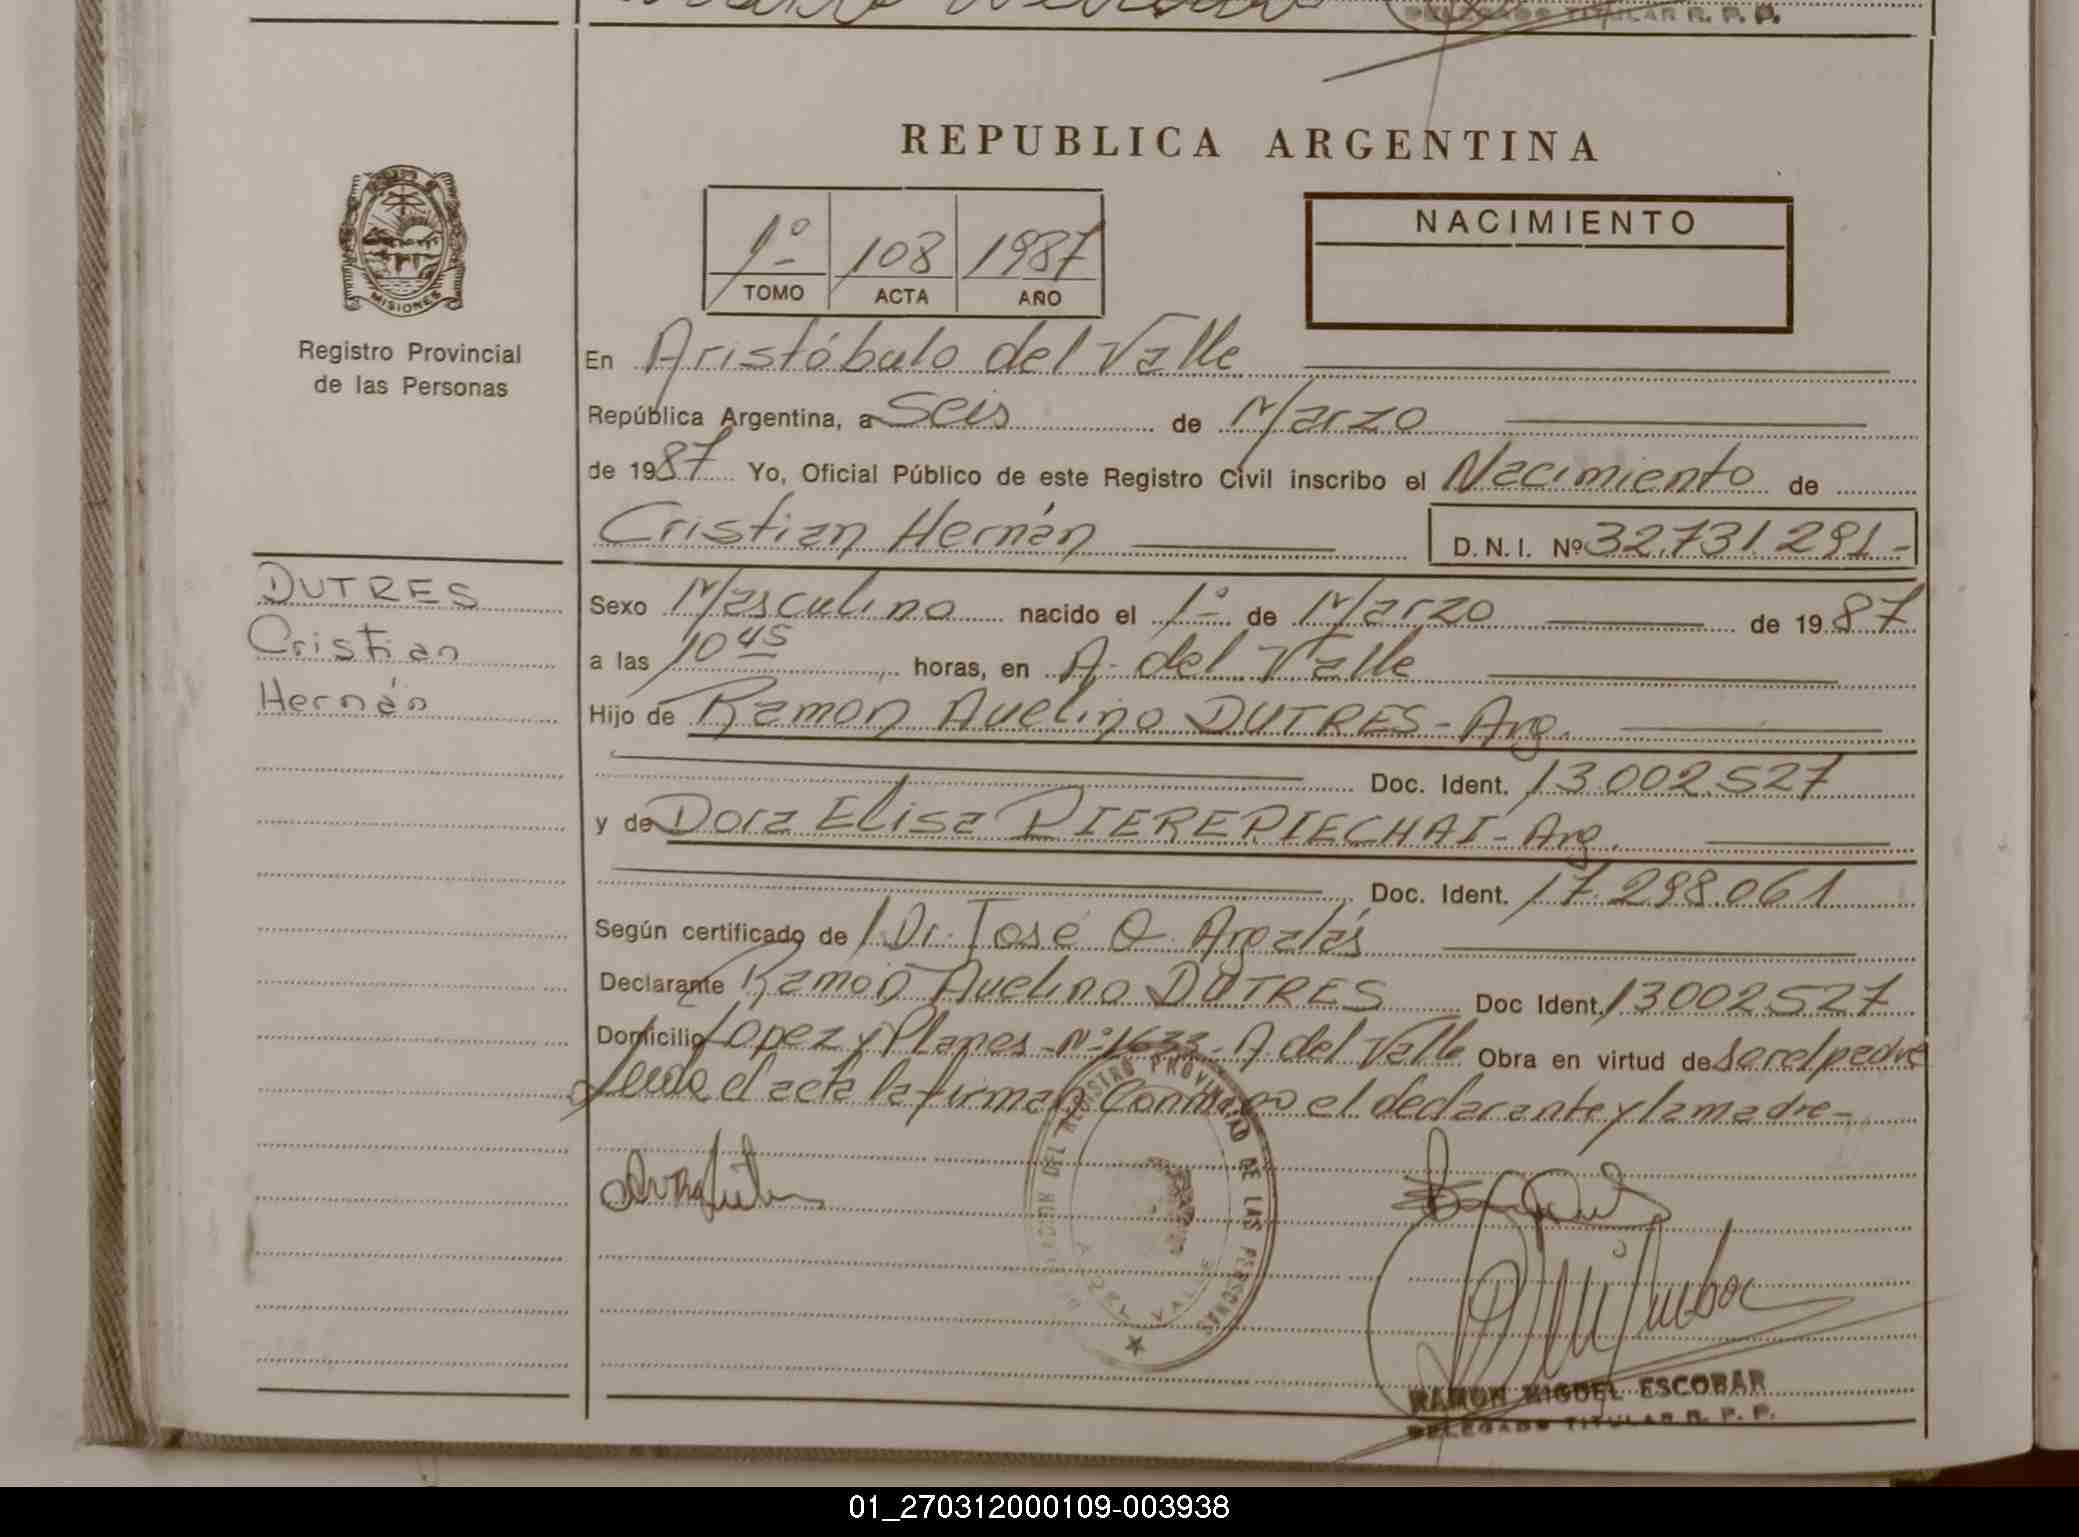 DELEGADO TITULAR R. P. P.
REPUBLICA ARGENTINA
1º 108 1987
TOMO ACTA AÑO
NACIMIENTO
MISIONES
Registro Provincial
de las Personas
En Aristóbulo del Valle
República Argentina, a Seis de Marzo
de 1987 Yo, Oficial Público de este Registro Civil inscribo el Nacimiento de
Cristian Hernán D. N. I. Nº 32.731.291-
DUTRES
Cristian
Hernán
Sexo Masculino nacido el 1º de Marzo de 1987
a las 10 45 horas, en A. del Valle
Hijo de Ramon Avelino DUTRES - Arg.
Doc. Ident. 13.002.527
y de Dora Elisa PIEREPIECHAI - Arg.
Doc. Ident. 17.298.061
Según certificado de Dr. José O. Argalás
Declarante Ramon Avelino DUTRES Doc Ident. 13002527
Domicilio Lopez y Planes - Nº 1633 - A. del Valle Obra en virtud de Ser el padre
Leida el acta la firman Conmigo el declarante y la madre-
DEL REGISTRO PROVINCIAL DE LAS PERSONAS
VALLE
RAMON MIGUEL ESCOBAR
DELEGADO TITULAR R. P. P.
01_270312000109-003938